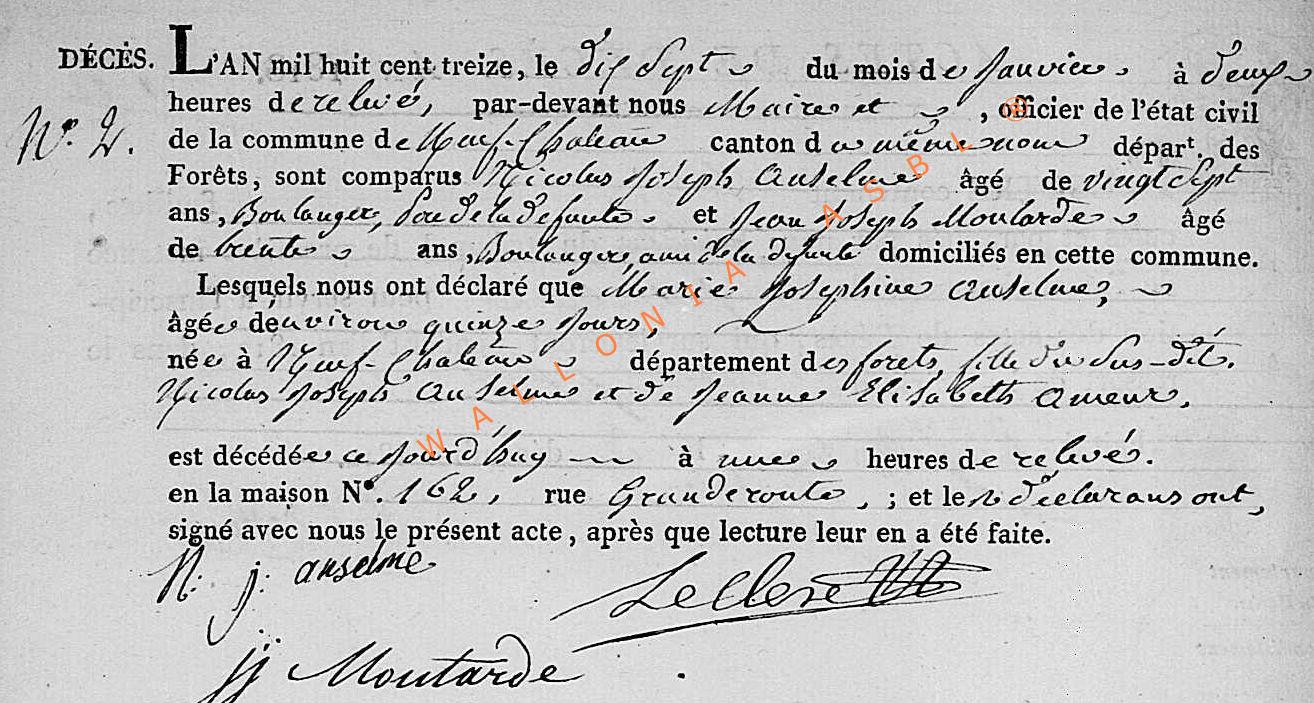 DÉCÈS. L'AN mil huit cent treize, le dix Sept du mois de Janvier à deux
heures de relevé, par-devant nous Maire et , officier de l'état civil
N.º 2. de la commune de Neuf-Chateau canton du même nom départ. des
Forêts, sont comparus Nicolas Joseph Anselme âgé de vingt Sept
ans, Boulanger, Pere de la defunte et Jean Joseph Moutarde âgé
de trente ans, Boulanger, ami de la defunte domiciliés en cette commune.
Lesquels nous ont déclaré que Marie Josephine Anselme,
âgée denviron quinze Jours,
née à Neuf-Chateau département des forets, fille du Sus-dit.
Nicolas Joseph Anselme et de Jeanne Elisabeth Ameur.
est décédée ce Jourd'huy à une heures de relevé.
en la maison Nº. 162, rue Grande route, ; et les déclarans ont,
signé avec nous le présent acte, après que lecture leur en a été faite.
N: j: anselme
Leclere
jj Moutarde
WALLONIA ASBL ®